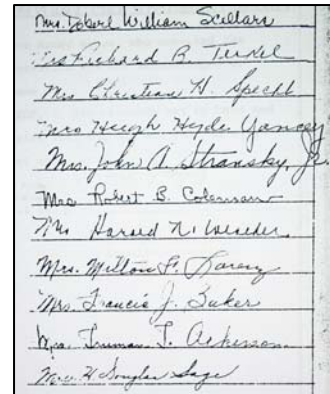 Mrs. Robert William Sellars
Mrs Richard B. Teikel
Mrs Christian H. Specht
Mrs Hugh Hyde Yancey
Mrs. John A. Stransky, Jr.
Mrs Robert B. Coleman
Mrs Harold N.
Mrs. Milton F.
Mrs. Francis J. Baker
Mrs. Truman T.
Mrs. H Douglas Sage